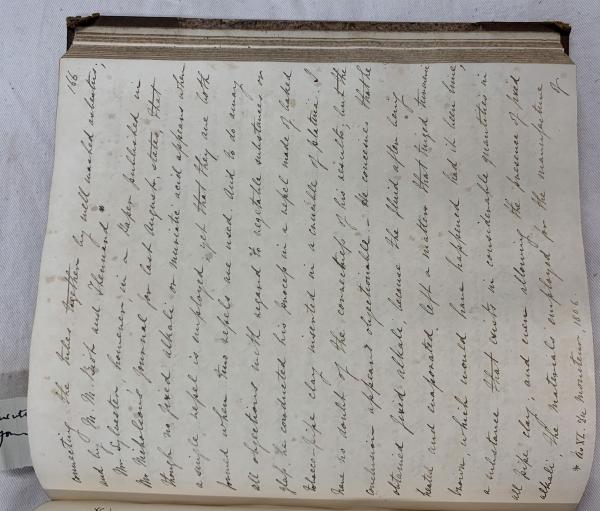 166
connecting the tubes together by well washed asbestus,
used by M. M. Gist and Thennard *
Mr. Sylvester, however in a Paper published in
Mr. Nicholsons Journal for last August, states that
though no fixed alkali or muriatic acid appears when
a single vessel is employed, yet that they are both
formed when two vessels are used. And to do away
all objections with regard to vegetable substances or
glass, he conducted his process in a vessel made of baked
tobacco-pipe clay inserted in a crucible of platina. I
have no doubt of the correctness of his results; but the
conclusion appears objectionable. He conceives that he
obtained fixed alkali, because the fluid after being
heated and evaporated left a matter that tinged turmeric
brown, which would have happened had it been lime,
a substance that exists in considerable quantities in
all pipe clay; and even allowing the presence of fixed
alkali, the materials employed for the manufacture
of
* No VI. Du Moniteur, 1806.